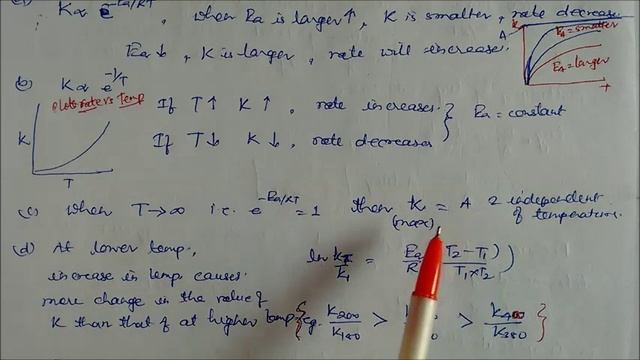 K ∝ e^-Ea/RT , when Ea is larger ↑ , K is smaller , rate decrease.
Ea ↓ , K is larger , rate will increase.
A
K
EA = smaller
EA = larger
T
(b) K ∝ e^-1/T
plot rate vs Temp
K
T
If T↑ K↑ , rate increases.
If T↓ K↓ , rate decreases
} Ea = constant
(c) when T→∞ i.e. e^-Ea/RT = 1 then K = A & independent
(max) of temperature.
(d) At lower temp., ln K2/K1 = Ea/R (T2 - T1 / T1×T2)
increase in temp. causes
more change in the value of
K than that of at higher temp {eg. K200/K180 > > K400/K380 }